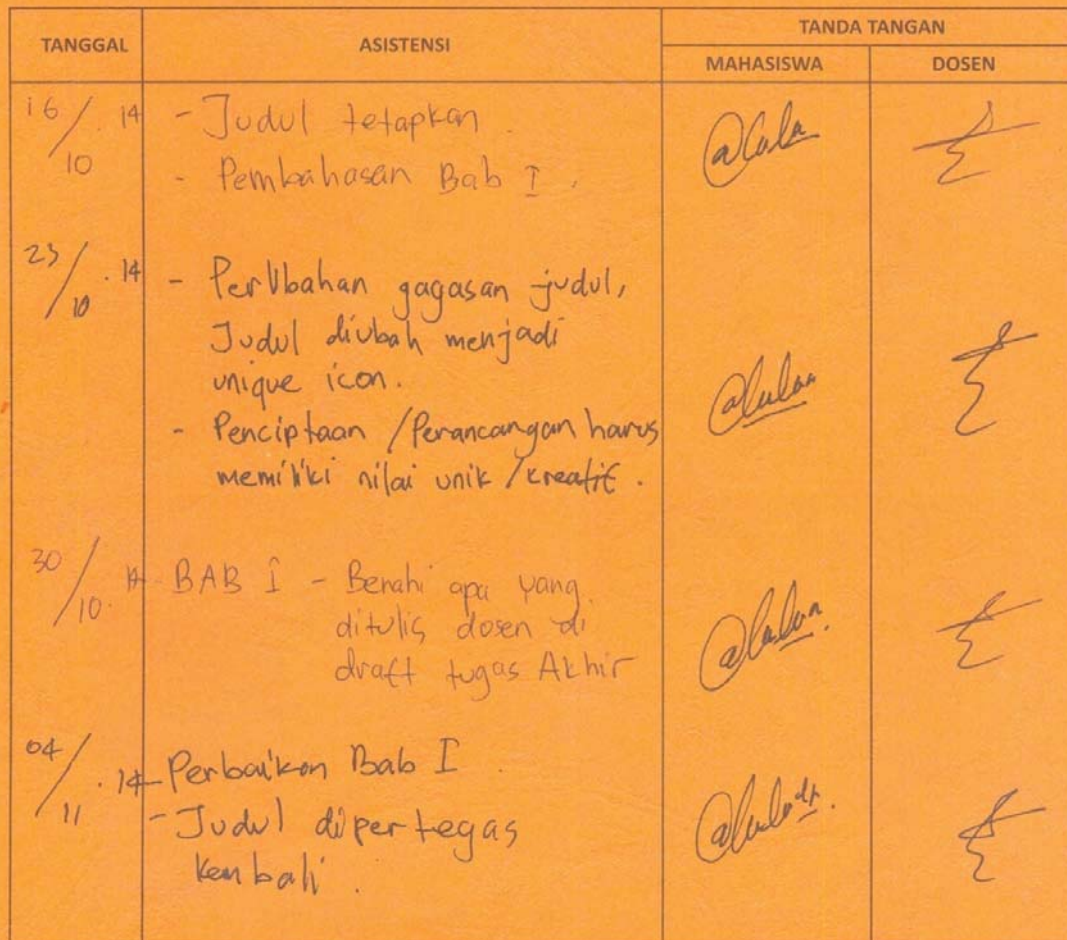 TANGGAL ASISTENSI TANDA TANGAN
MAHASISWA DOSEN
16/10.14 - Judul tetapkan.
- Pembahasan Bab I.
23/10.14 - Perubahan gagasan judul,
Judul diubah menjadi
unique icon.
- Penciptaan / Perancangan harus
memiliki nilai unik / kreatif.
30/10.14 BAB I - Benahi apa yang
ditulis dosen di
draft tugas Akhir
04/11.14 - Perbaikan Bab I
- Judul dipertegas
kembali.